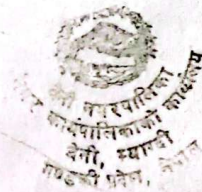 बेनी नगरपालिका
नगर कार्यपालिकाको कार्यालय
बेनी, म्याग्दी
गण्डकी प्रदेश, नेपाल